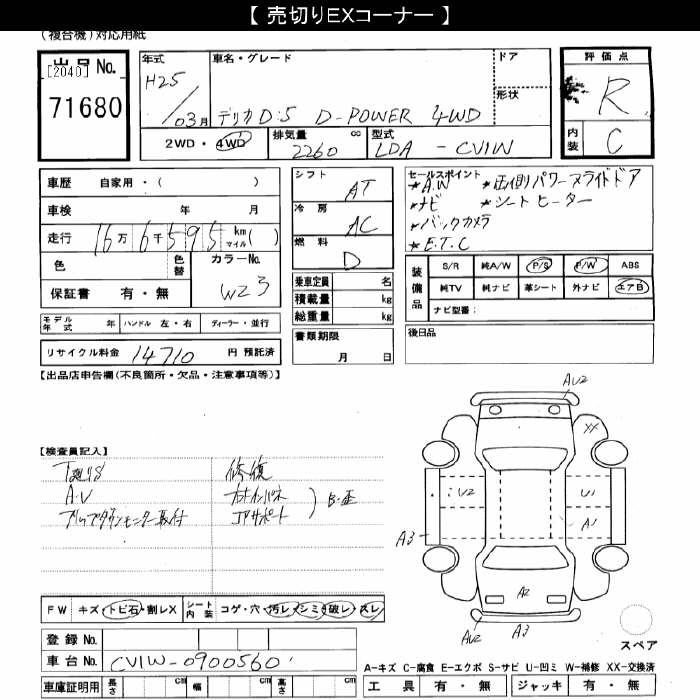 【 売切りEXコーナー 】
(複合機)対応用紙
出品No.
[2040]
71680
年式
H25
/03月
車名・グレード
デリカD:5 D-POWER 4WD
ドア
形状
2WD・4WD
排気量 cc
2260
型式
LDA - CV1W
評価点
R
内装
C
車歴 自家用・( )
車検 年 月
走行 16万6千595 km マイル( )
色
色替
カラーNo.
WZ3
保証書 有・無
シフト
AT
冷房
AC
燃料
D
乗車定員 名
積載量 kg
総重量 kg
セールスポイント
★A.W ★左側パワースライドドア
★ナビ ★シートヒーター
★バックカメラ
★E.T.C
装備品
S/R 純A/W P/S P/W ABS
純TV 純ナビ 革シート 外ナビ エアB
ナビ型番:
モデル年式 年 ハンドル 左・右 ディーラー・並行
リサイクル料金 14710 円 預託済
書類期限
月 日
後日品
【出品店申告欄(不良箇所・欠品・注意事項等)】
【検査員記入】
下廻りS
A.U
フリップダウンモニター取付
修復
フロントインパネ
コアサポート
AU2
XX
U2
U1
A1
A3
A2
AU2
A3
スペア
FW キズ・トビ石・割レX
シート内装 コゲ・穴・汚レ・シミ・破レ・スレ
登録No.
車台No. CV1W-0900560
車庫証明用 長さ cm 幅 cm 高さ cm
A-キズ C-腐食 E-エクボ S-サビ U-凹ミ W-補修 XX-交換済
工具 有・無 ジャッキ 有・無